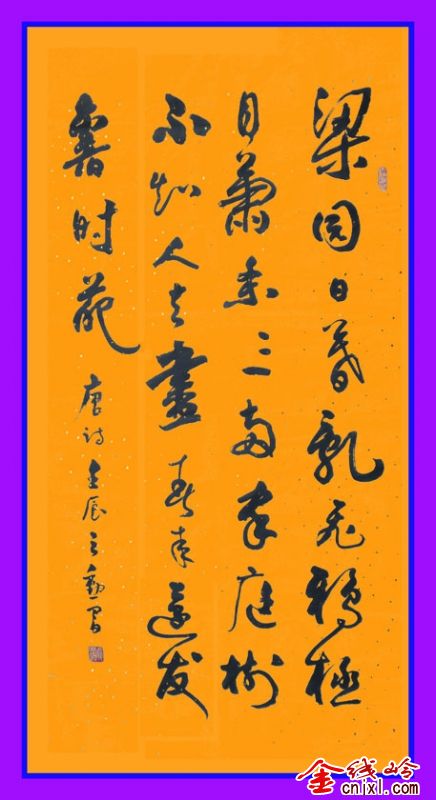 梁园日暮乱飞鸦極
目蕭条三两家庭树
不知人去盡春来還发
舊时花
唐诗 壬辰
金线岭
cnixl.com